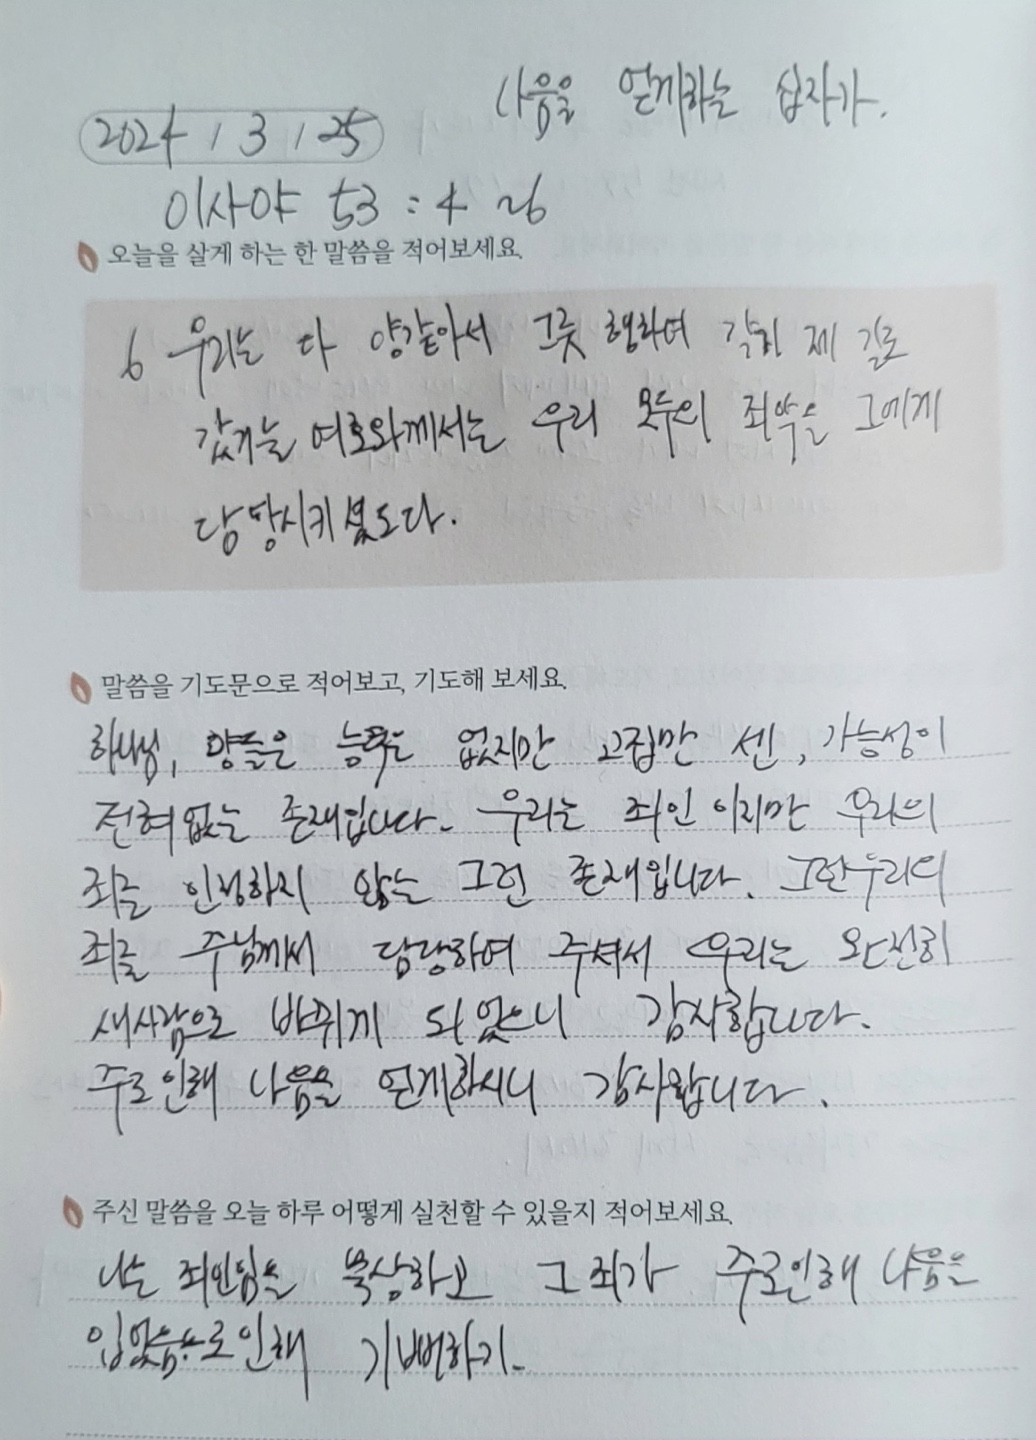 나음을 얻게하는 십자가.
2024 / 3 / 25
이사야 53 : 4 ~6
오늘을 살게 하는 한 말씀을 적어보세요.
6 우리는 다 양같아서 그릇 행하여 각기 제 길로
갔거늘 여호와께서는 우리 모두의 죄악을 그에게
담당시키셨도다.
말씀을 기도문으로 적어보고, 기도해 보세요.
하나님, 양들은 능력은 없지만 고집만 센, 가능성이
전혀없는 존재입니다. 우리는 죄인이지만 우리의
죄를 인정하지 않는 그런 존재입니다. 그런우리의
죄를 주님께서 담당하여 주셔서 우리는 완전히
새사람으로 바뀌게 되었으니 감사합니다.
주로인해 나음을 얻게하시니 감사합니다.
주신 말씀을 오늘 하루 어떻게 실천할 수 있을지 적어보세요.
나는 죄인임을 묵상하고 그 죄가 주로인해 나음을
입었음으로인해 기뻐하기.